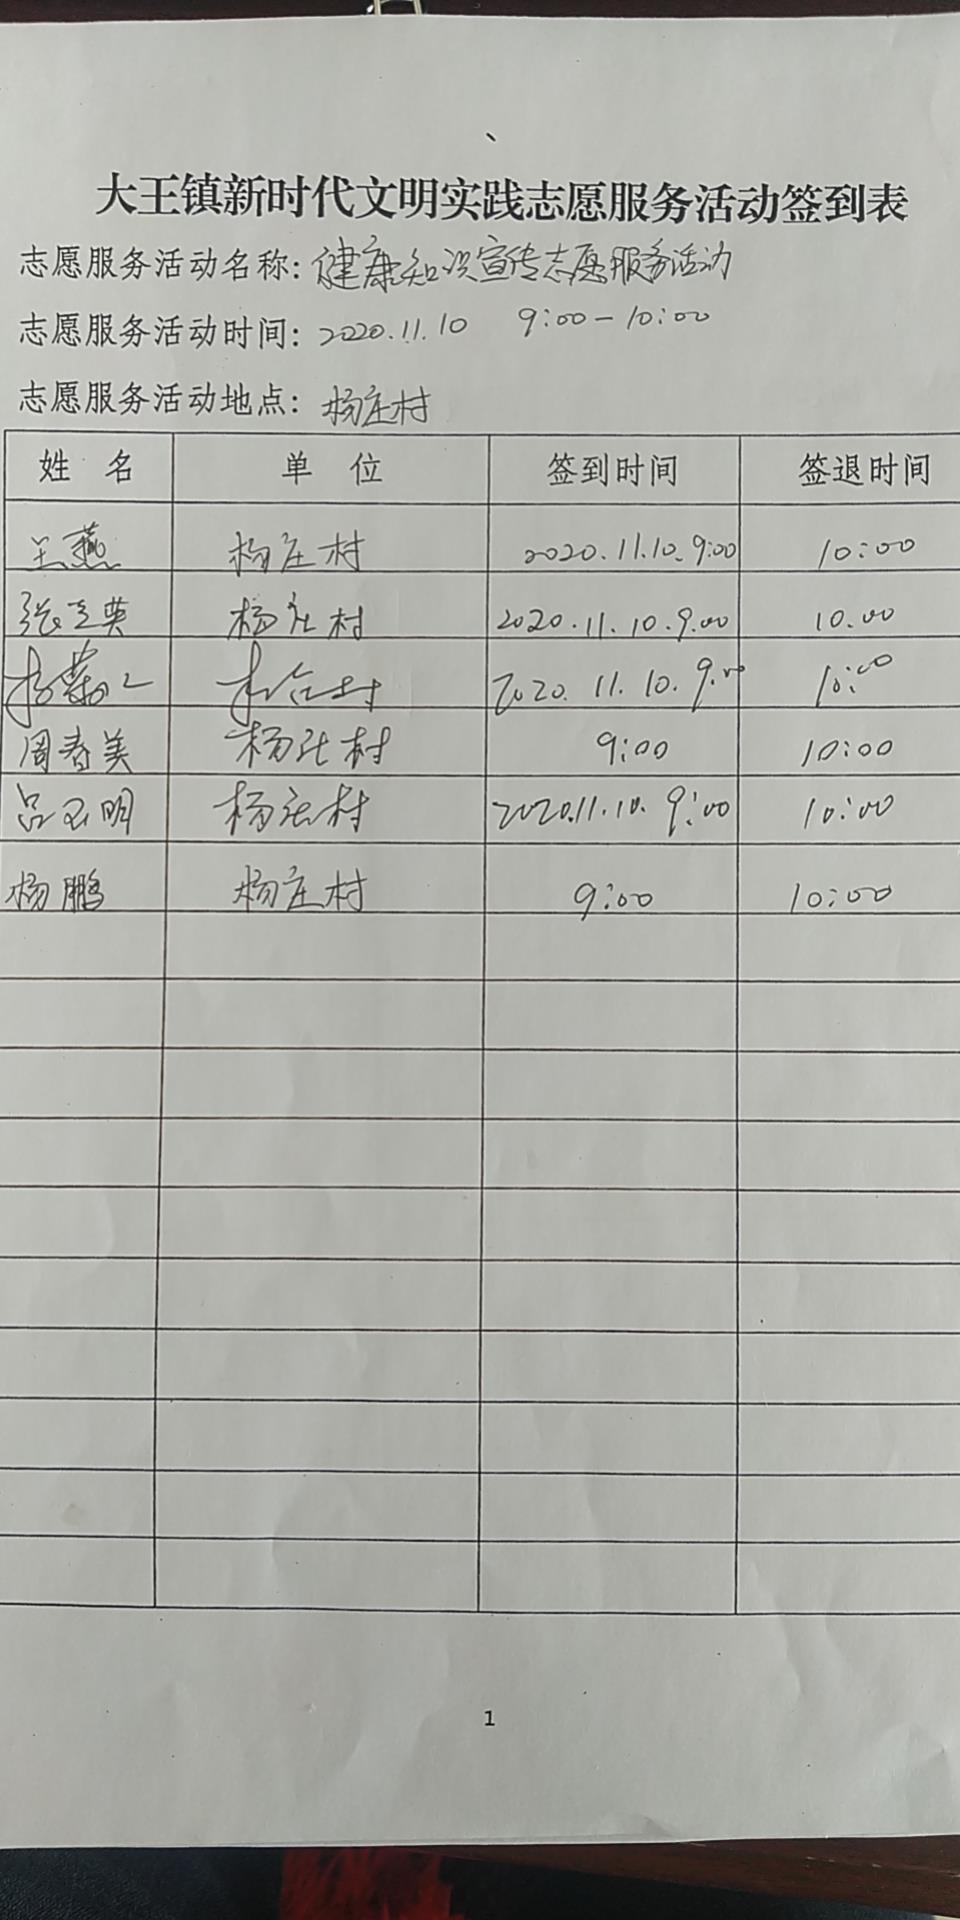 大王镇新时代文明实践志愿服务活动签到表
志愿服务活动名称: 健康知识宣传志愿服务活动
志愿服务活动时间: 2020.11.10 9:00-10:00
志愿服务活动地点: 杨庄村
姓 名 单 位 签到时间 签退时间
王燕 杨庄村 2020.11.10.9:00 10:00
张立英 杨庄村 2020.11.10.9.00 10.00
杨 村 2020.11.10.9:00 10:00
周春美 杨庄村 9:00 10:00
吕玉明 杨庄村 2020.11.10. 9:00 10:00
杨鹏 杨庄村 9:00 10:00
1